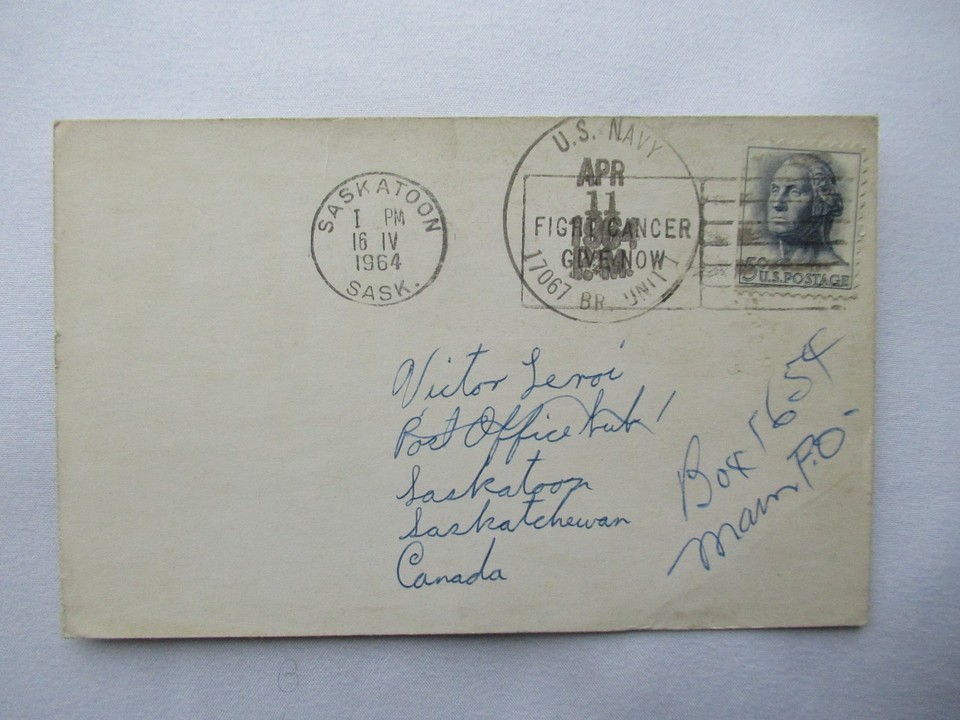 SASKATOON
1 PM
16 IV
1964
SASK.
U.S. NAVY
APR
11
1964
A.M.
17067 BR. UNIT 1
FIGHT CANCER
GIVE NOW
5¢ U.S. POSTAGE
Victor Leroi
Post Office
Saskatoon
Saskatchewan
Canada
Box 1654
Main P.O.